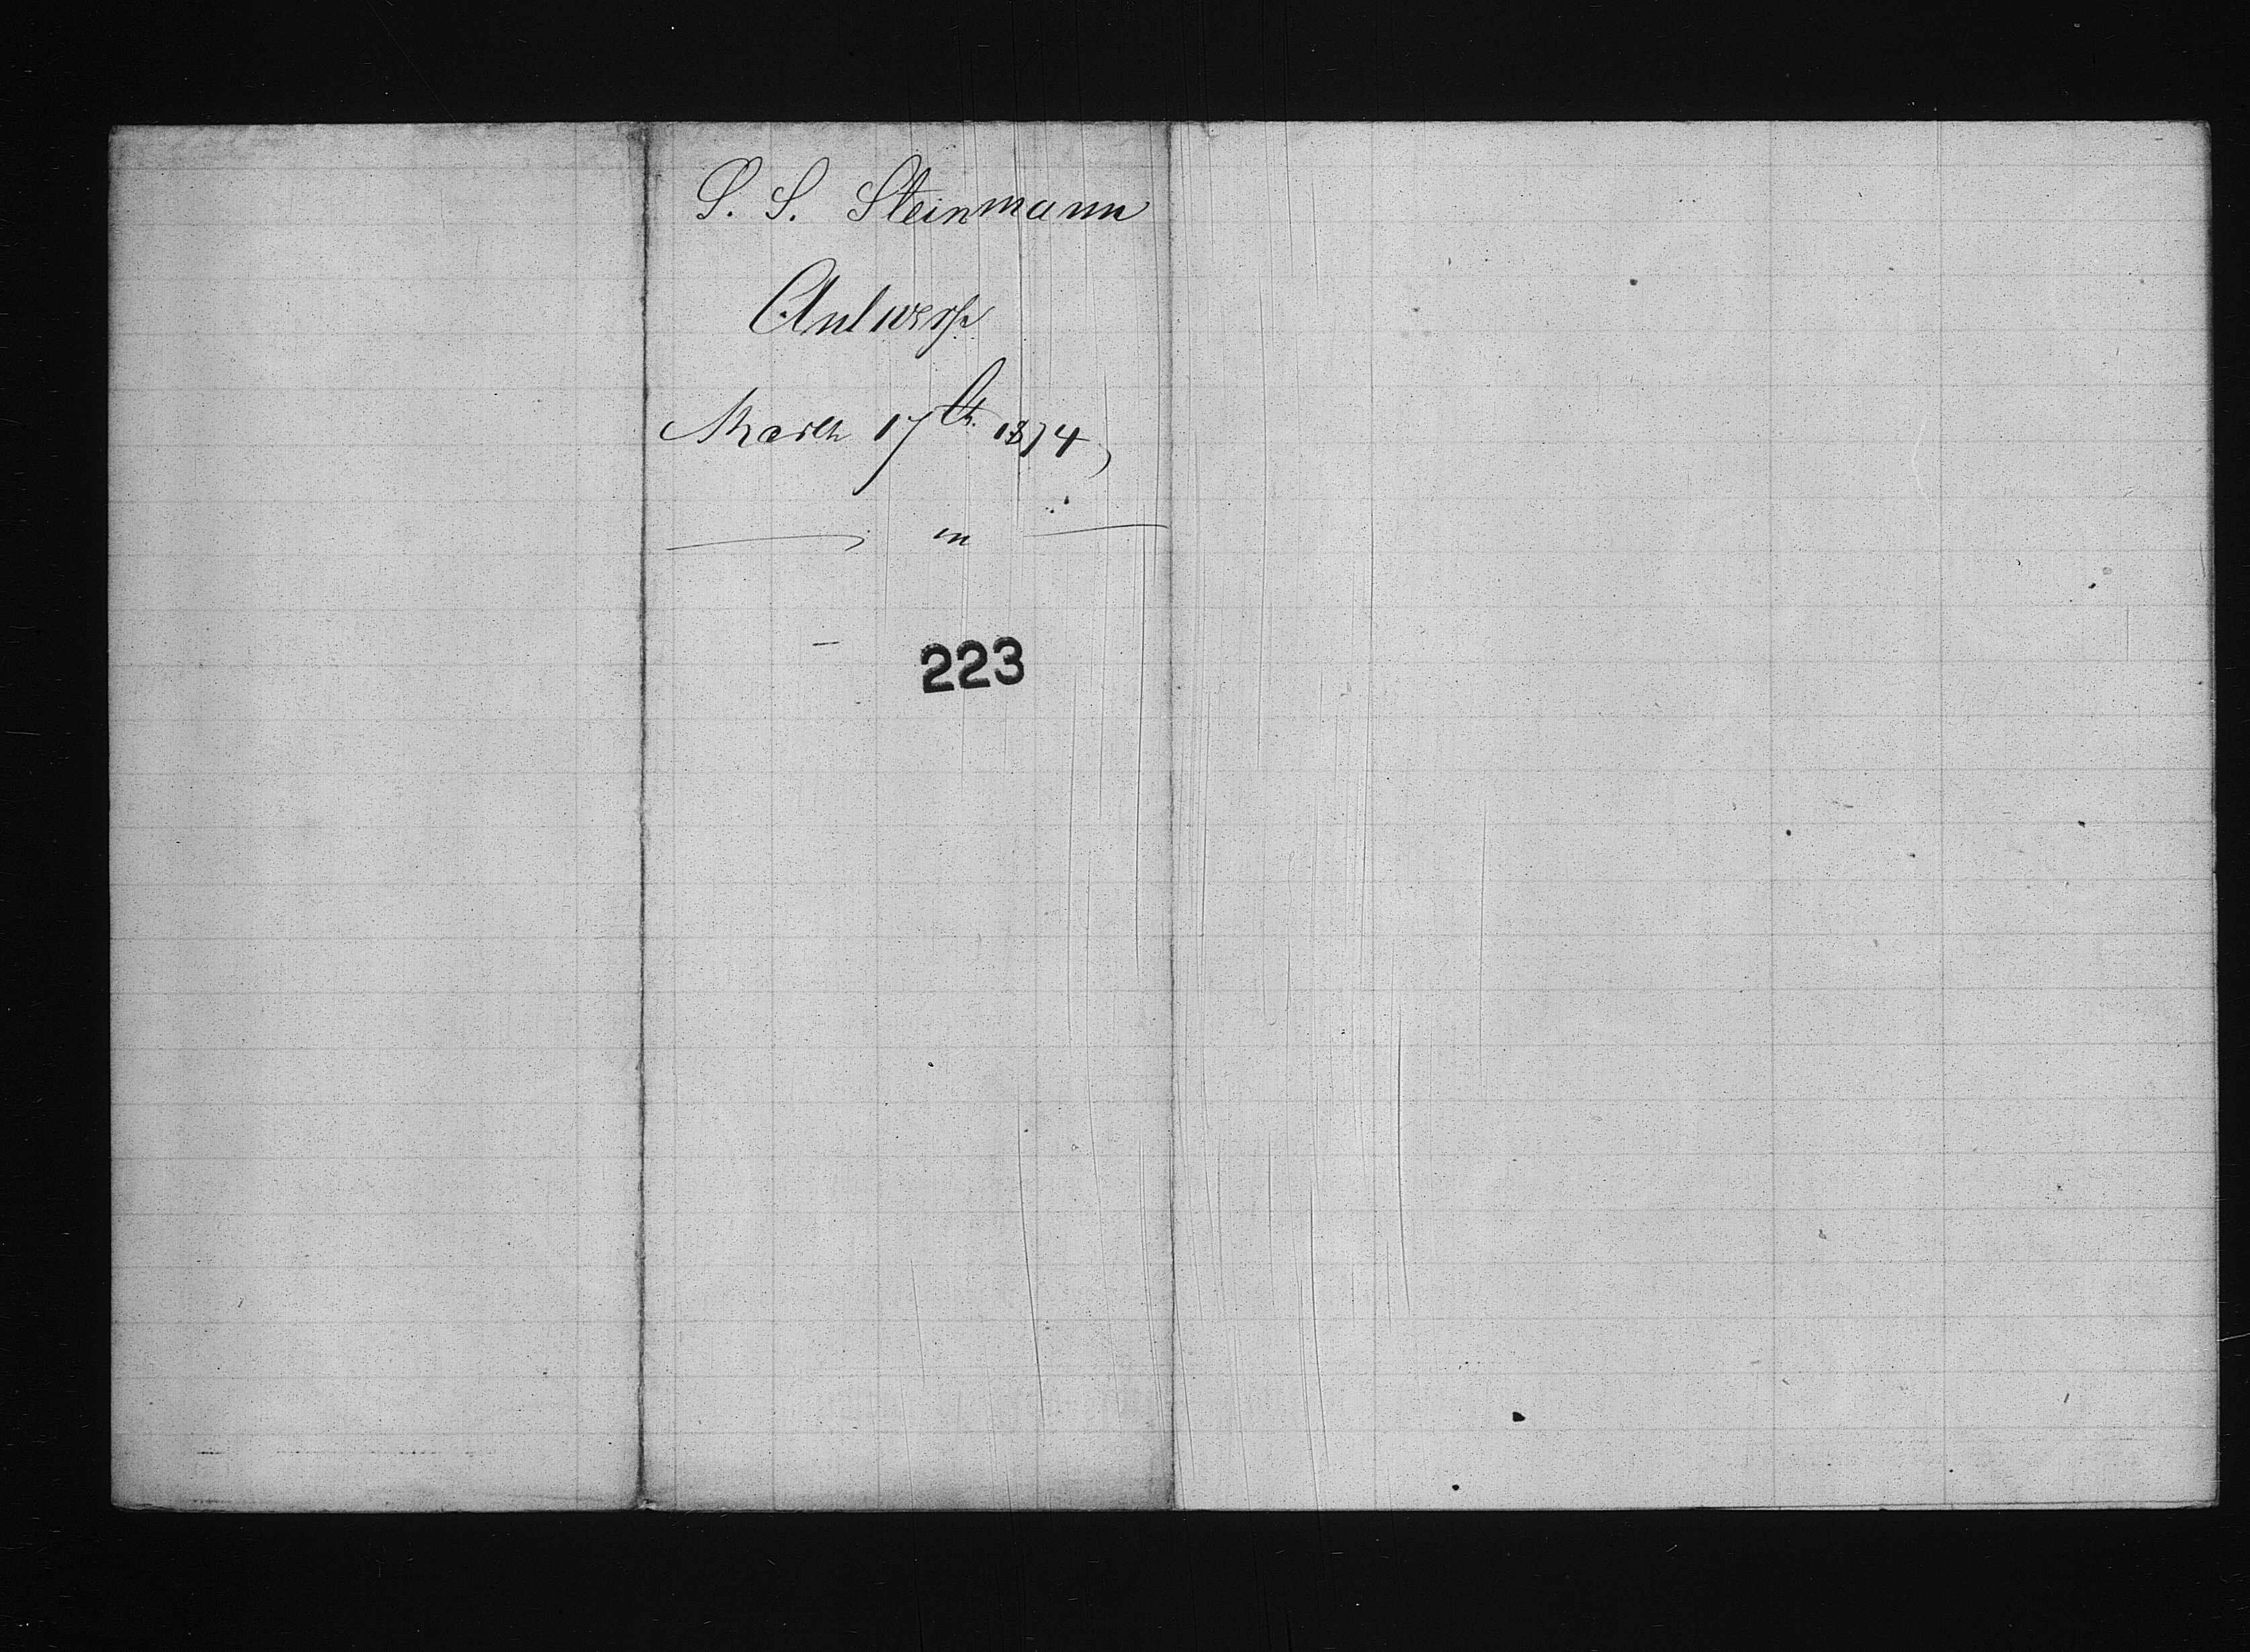 S. S. Steinmann
Antwerp
March 17th. 1874
m
223